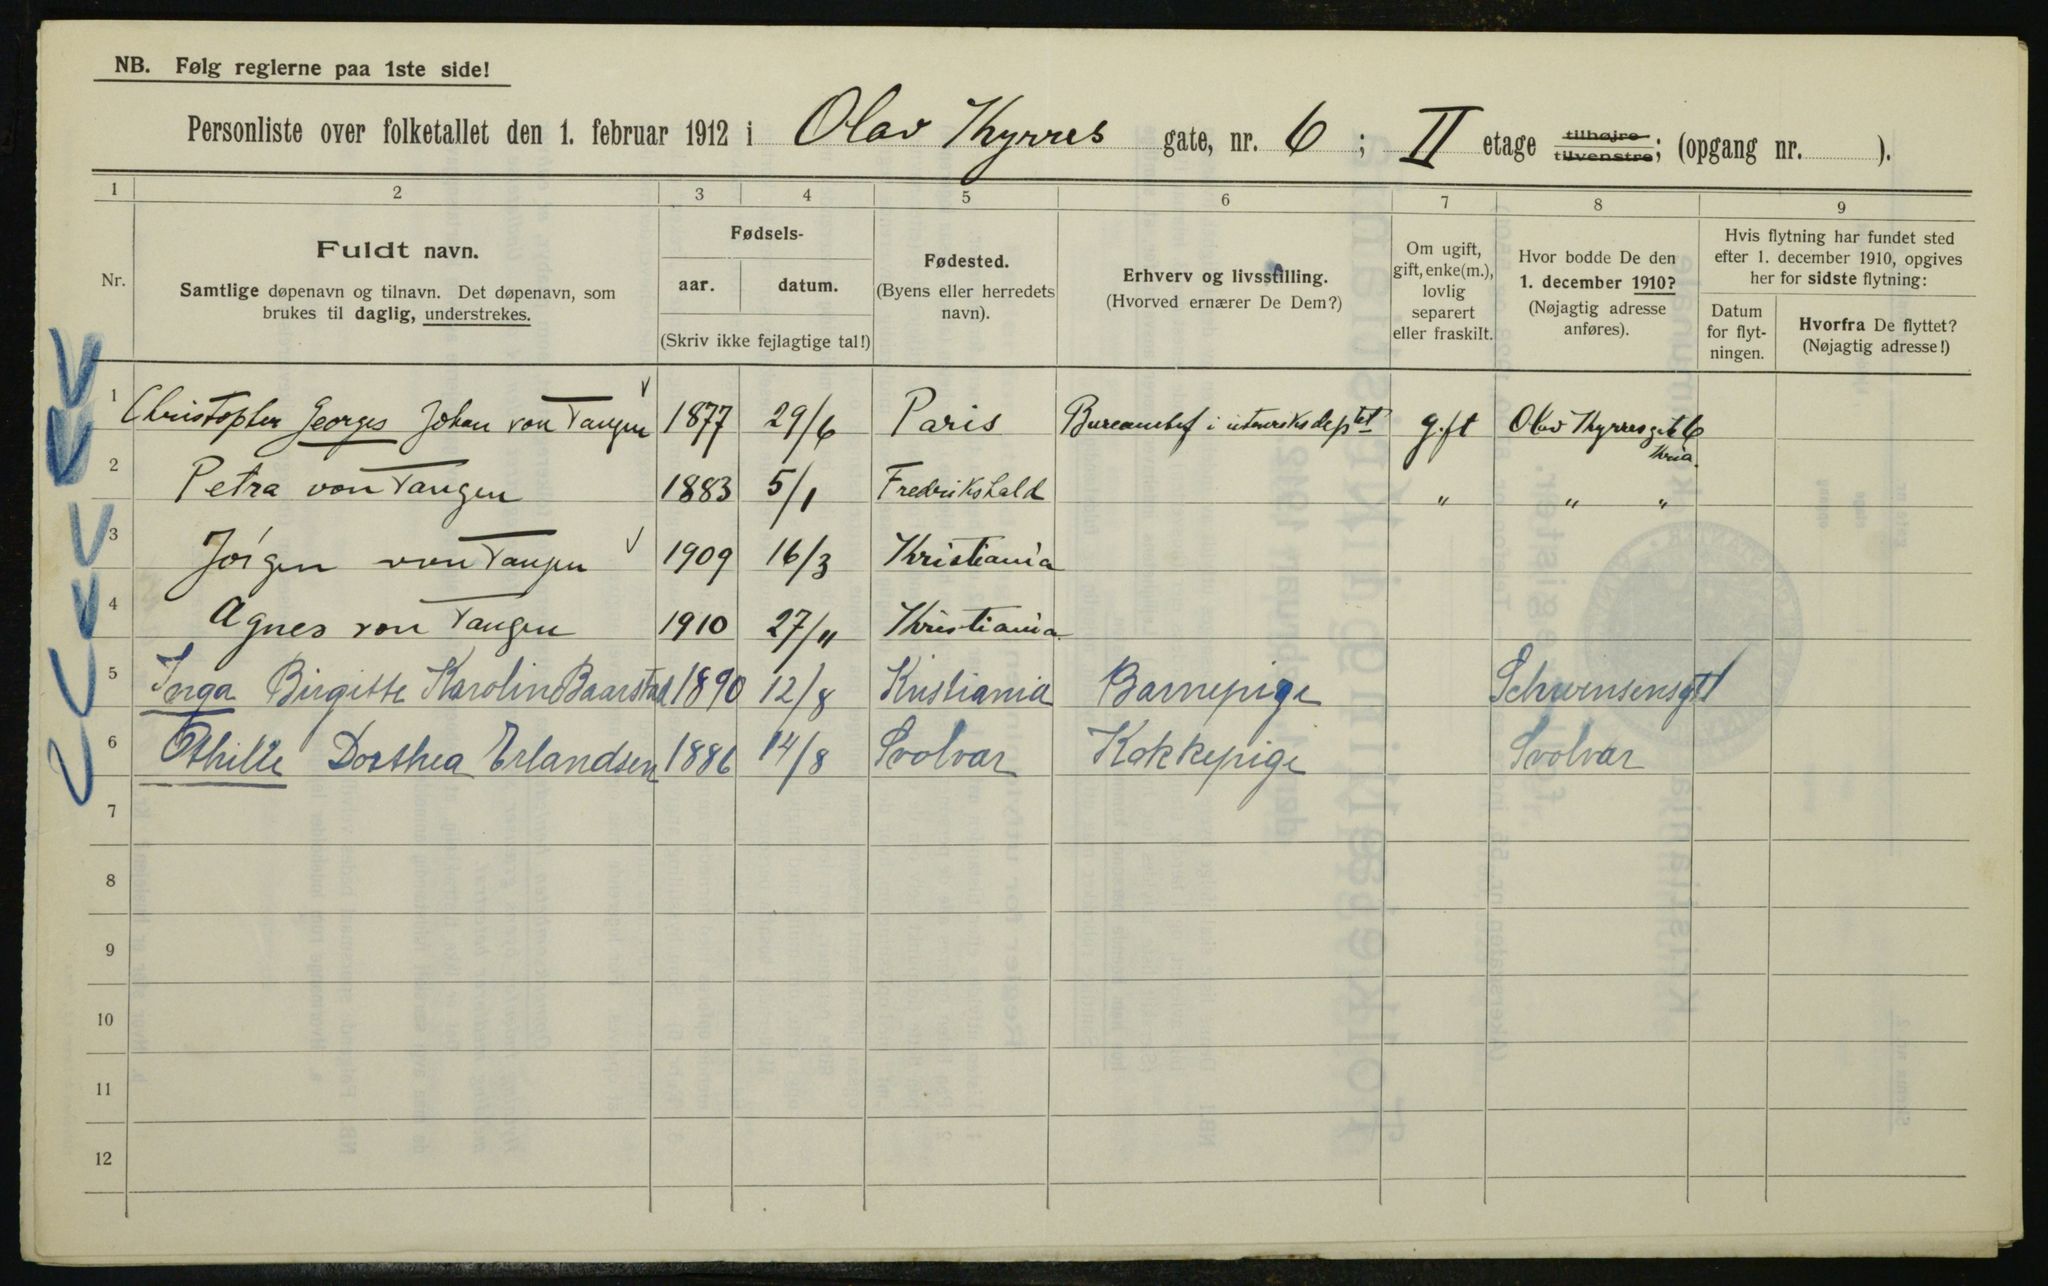 NB. Følg reglerne paa 1ste side!
Personliste over folketallet den 1. februar 1912 i Olav Kyrres gate, nr. 6; II etage tilhøjre tilvenstre; (opgang nr. ).
1 2 3 4 5 6 7 8 9
Nr.
Fuldt navn.
Samtlige døpenavn og tilnavn. Det døpenavn, som
brukes til daglig, understrekes.
Fødsels-
aar. datum.
(Skriv ikke fejlagtige tal!)
Fødested.
(Byens eller herredets
navn).
Erhverv og livsstilling.
(Hvorved ernærer De Dem?)
Om ugift,
gift, enke(m.),
lovlig
separert
eller fraskilt.
Hvor bodde De den
1. december 1910?
(Nøjagtig adresse
anføres).
Hvis flytning har fundet sted
efter 1. december 1910, opgives
her for sidste flytning:
Datum
for flyt-
ningen.
Hvorfra De flyttet?
(Nøjagtig adresse!)
1 Christopher Georges Johan von Tangen 1877 29/6 Paris gift Olav Kyrresgt 6
Kria.
2 Petra von Tangen 1883 5/1 Fredrikshald " " "
3 Jörgen von Tangen 1909 16/3 Kristiania
4 Agnes von Tangen 1910 27/11 Kristiania
5 Inga Birgitte Karolin Baarstad 1890 12/8 Kristiania Barnepige
6 Othilie Dorthea Erlandsen 1886 14/8 Svolvær Kokkepige Svolvær
7
8
9
10
11
12